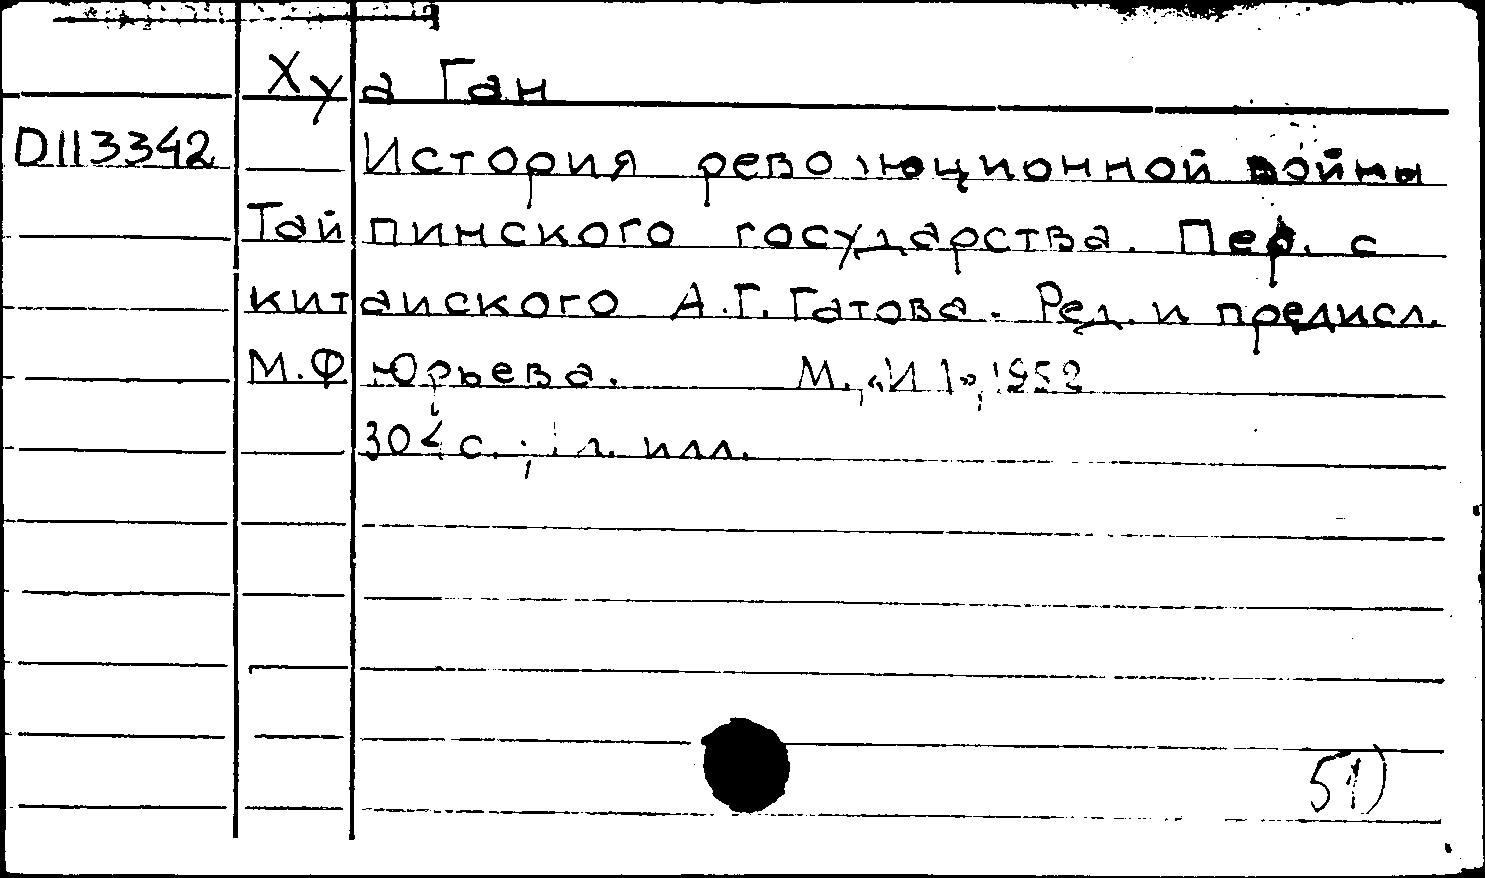 Хуа Ган
D113342 История революционной войны
Тайпинского государства. Пер. с
китайского А.Г. Гатова. Ред. и предисл.
М.Ф Юрьева. М., «И Л», 1952
с.; л. илл.
51)